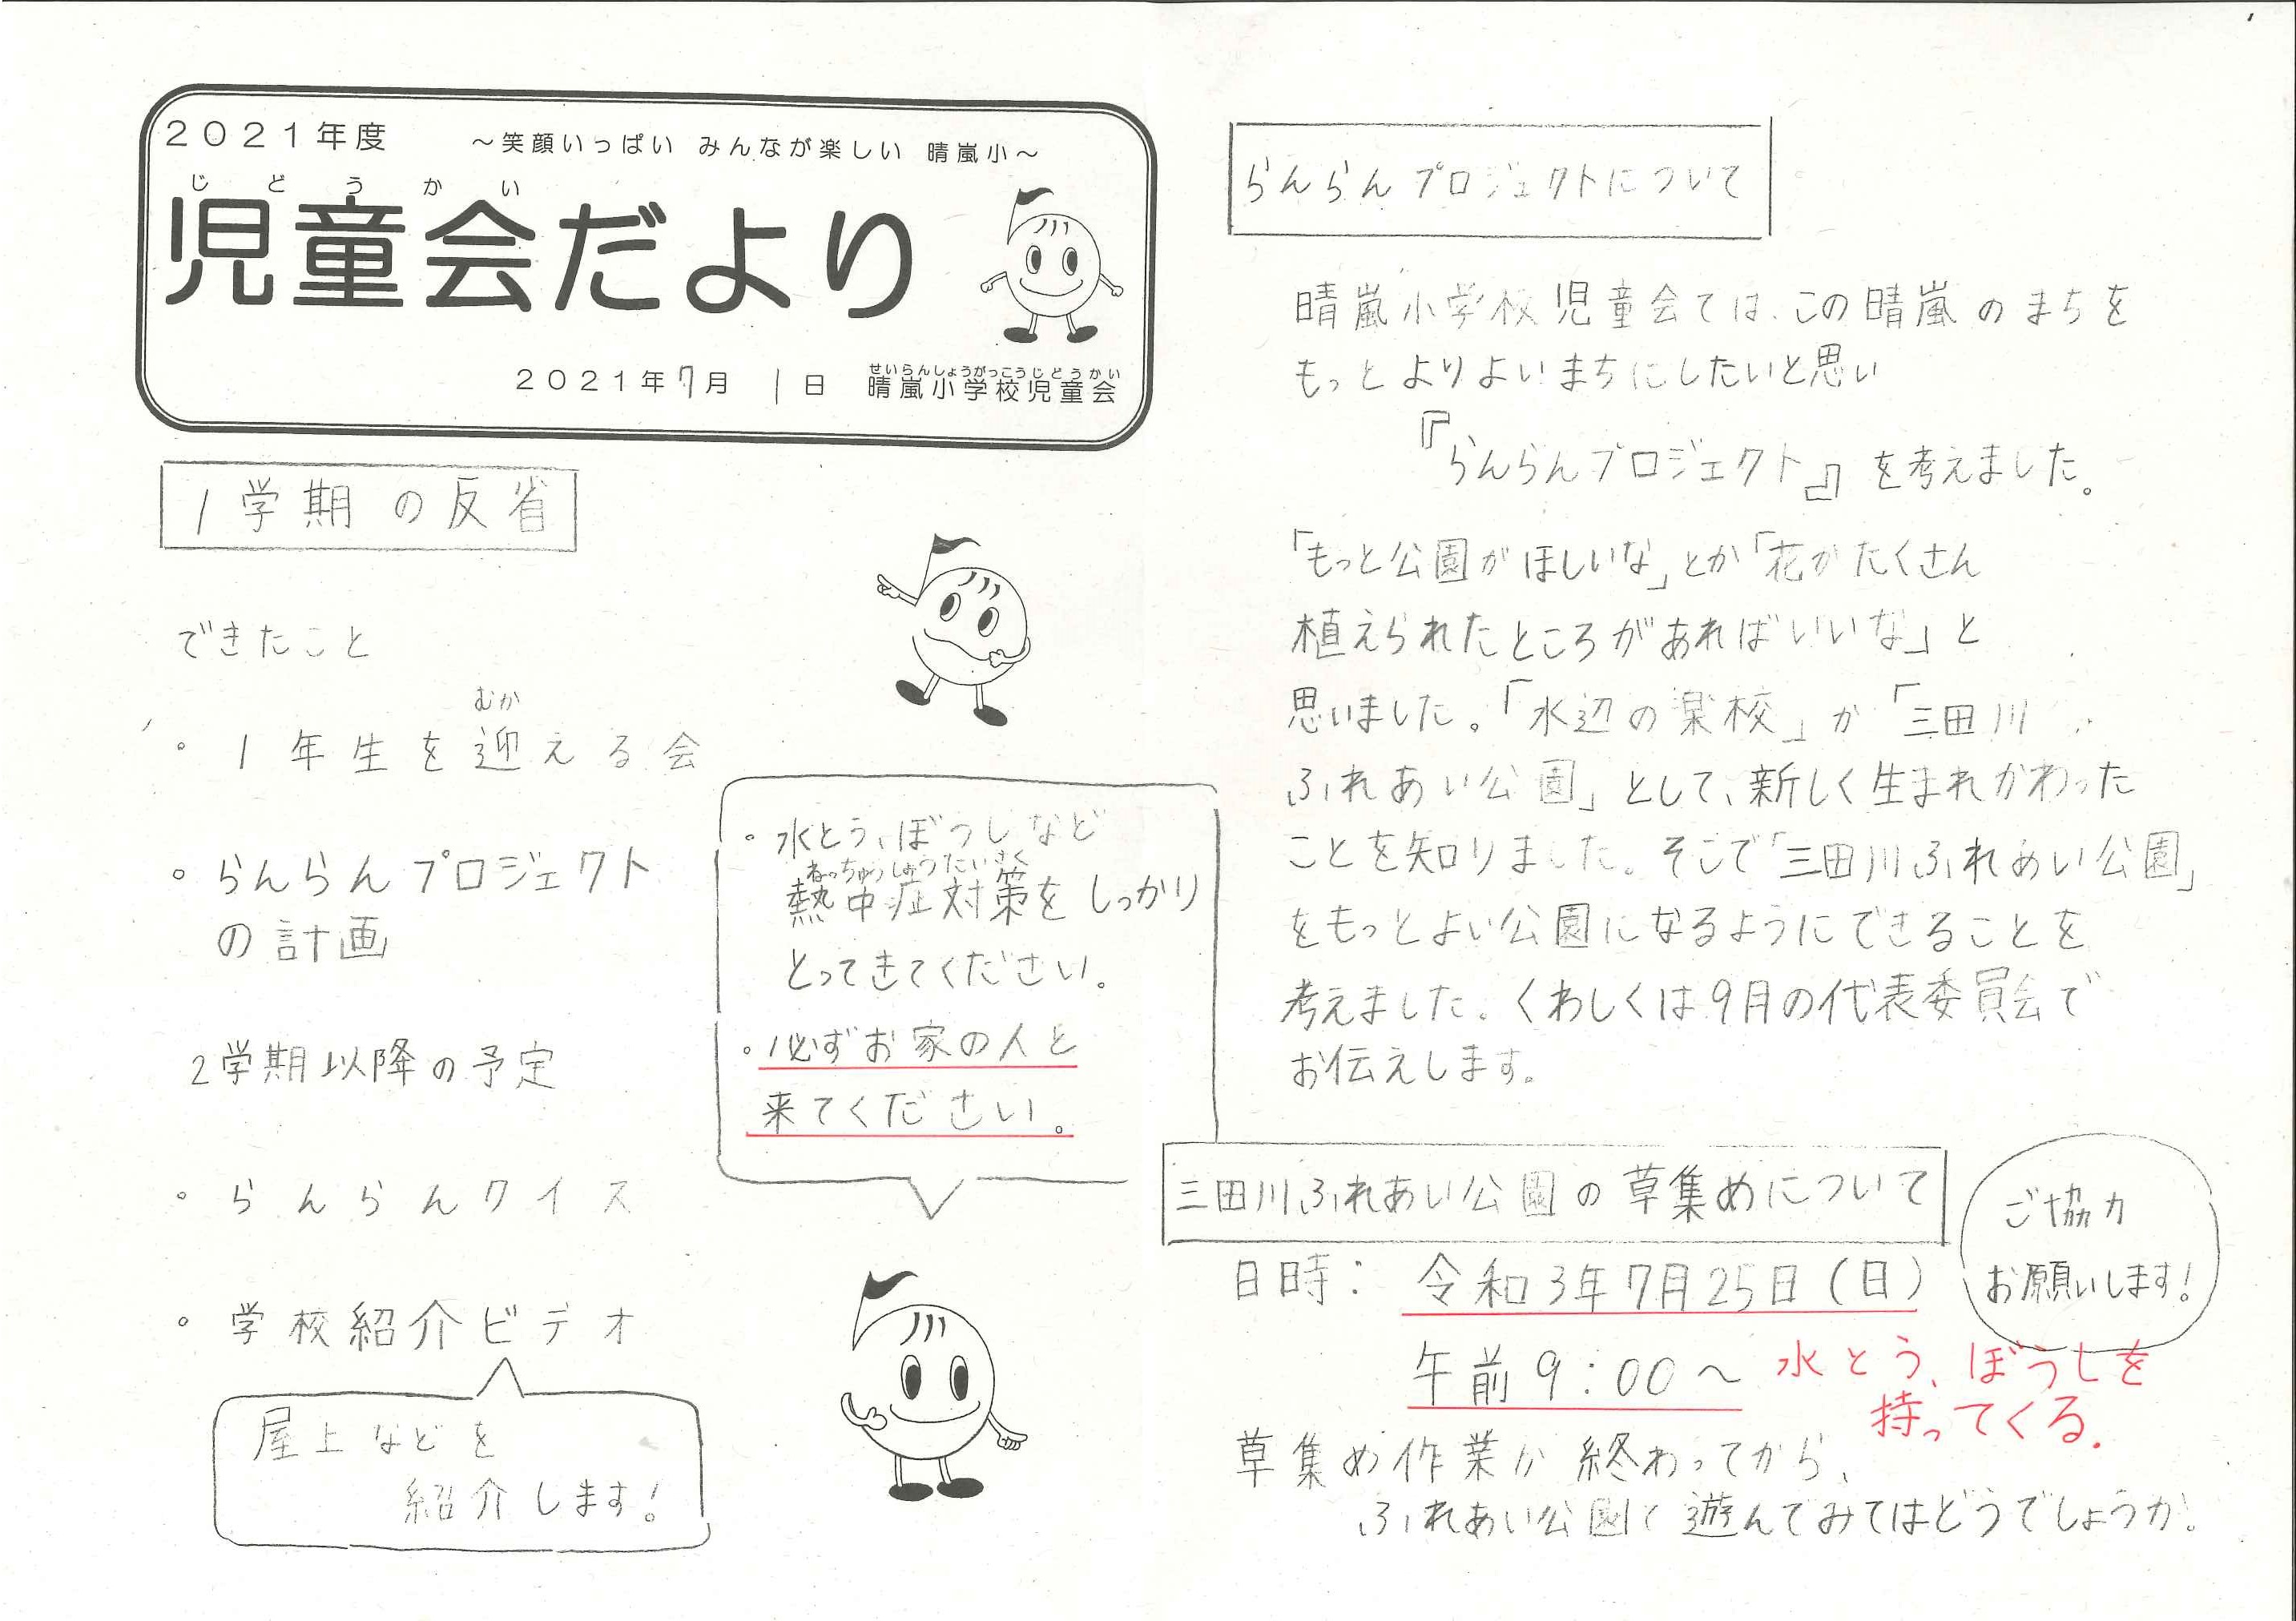 2021年度
～笑顔いっぱい みんなが楽しい 晴嵐小～
じどうかい
児童会だより
2021年7月 1日
せいらんしょうがっこうじどうかい
晴嵐小学校児童会
1学期の反省
できたこと
むか
・1年生を迎える会
・らんらんプロジェクト
の計画
2学期以降の予定
・らんらんクイズ
・学校紹介ビデオ
屋上などを
紹介します!
・水とう、ぼうしなど
ねっちゅうしょうたいさく
熱中症対策をしっかり
とってきてください。
・必ずお家の人と
来てください。
らんらんプロジェクトについて
晴嵐小学校児童会では、この晴嵐のまちを
もっとよりよいまちにしたいと思い
『らんらんプロジェクト』を考えました。
「もっと公園がほしいな」とか「花がたくさん
植えられたところがあればいいな」と
思いました。「水辺の楽校」が「三田川
ふれあい公園」として、新しく生まれかわった
ことを知りました。そこで「三田川ふれあい公園」
をもっとよい公園になるようにできることを
考えました。くわしくは9月の代表委員会で
お伝えします。
三田川ふれあい公園の草集めについて
ご協力
お願いします!
日時：令和3年7月25日(日)
午前9:00～
水とう、ぼうしを
持ってくる.
草集め作業が終わってから、
ふれあい公園で遊んでみてはどうでしょうか。